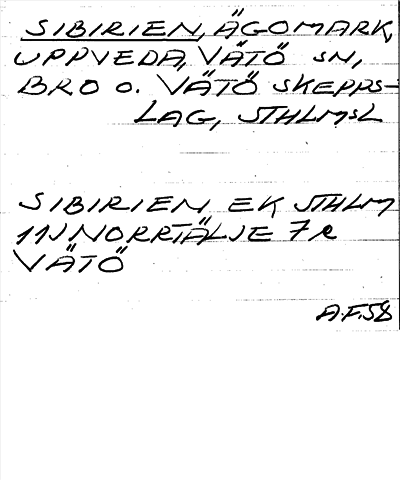 SIBIRIEN, ÄGOMARK,
UPPVEDA, VÄTÖ SN,
BRO O. VÄTÖ SKEPPS-
LAG, STHLMSL
SIBIRIEN EK STHLM
11J NORRTÄLJE 7 R
VÄTÖ
A.F.58